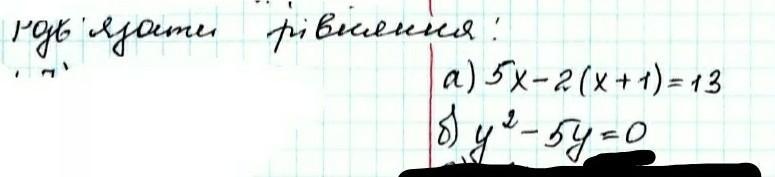 розв'язати рівняння:
а) 5x-2(x+1)=13
б) y²-5y=0